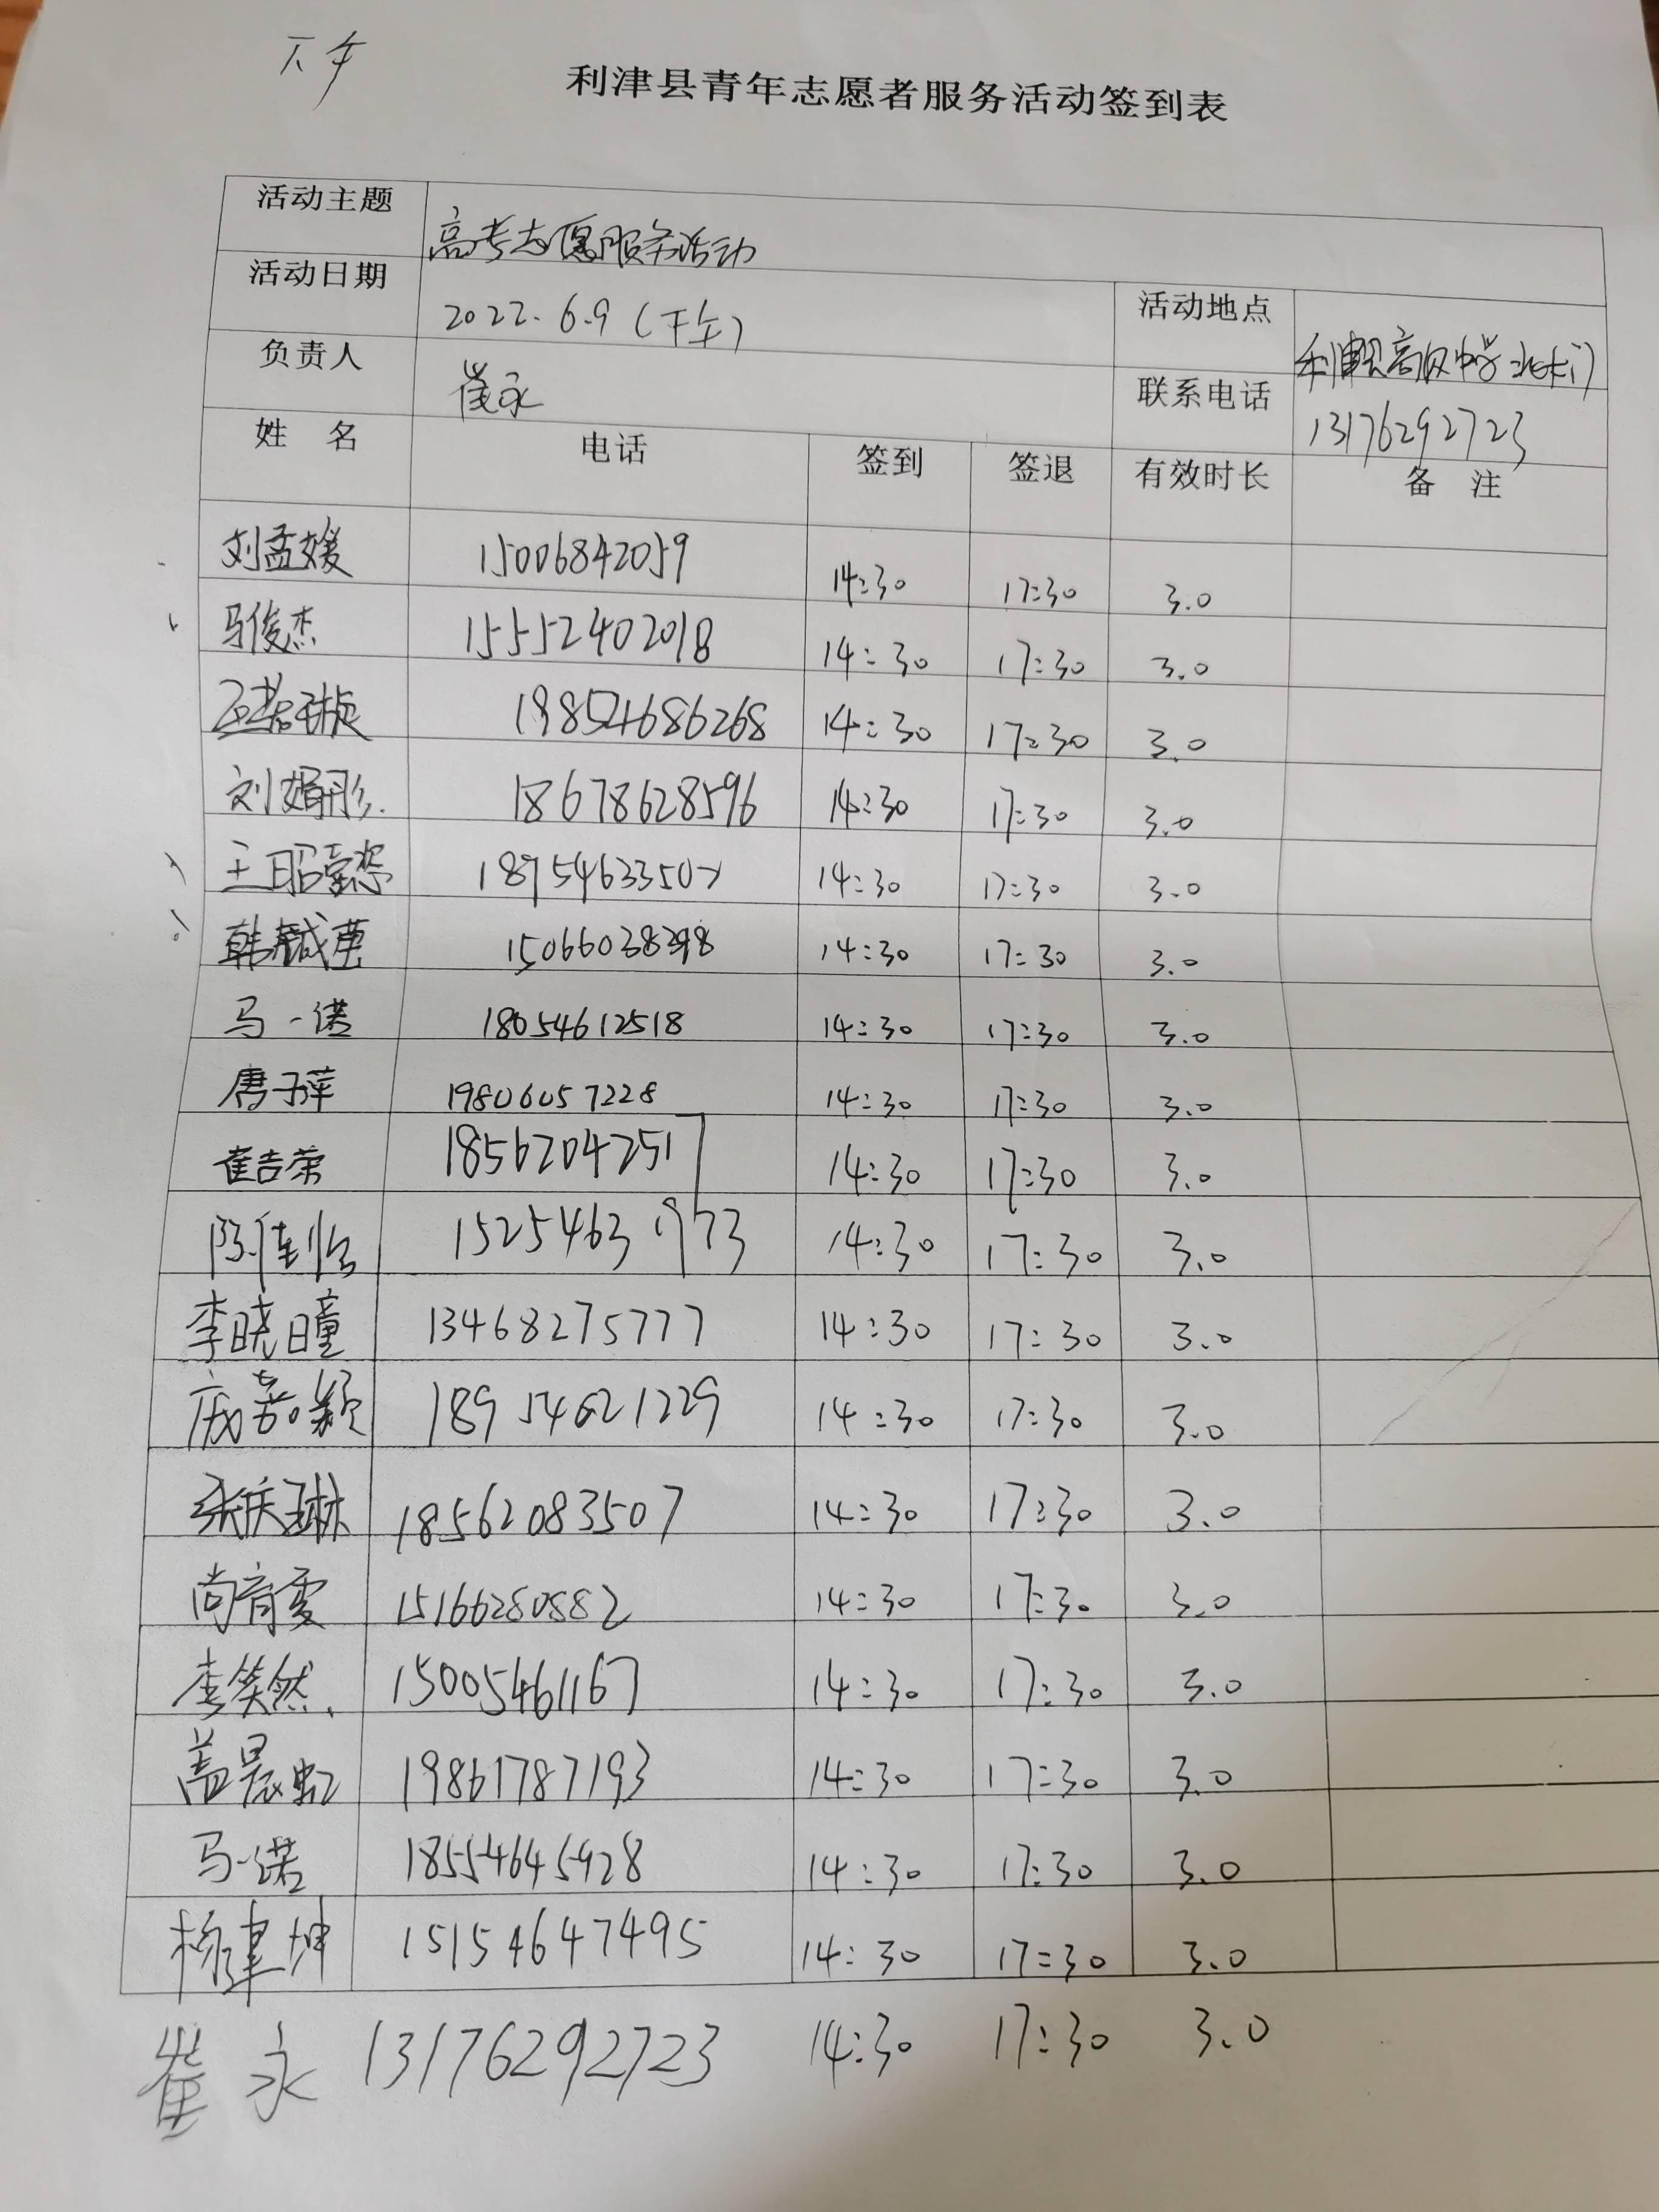 下午
利津县青年志愿者服务活动签到表
活动主题 高考志愿服务活动
活动日期 2022.6.9（下午） 活动地点 利津县高级中学北大门
负责人 崔永 联系电话 13176292723
姓 名 电话 签到 签退 有效时长 备 注
刘孟媛 15006842059 14:30 17:30 3.0
马俊杰 15552402018 14:30 17:30 3.0
19854686268 14:30 17:30 3.0
刘娟彤 18678628596 14:30 17:30 3.0
14:30 17:30 3.0
14:30 17:30 3.0
马一诺 18054612518 14:30 17:30 3.0
唐子萍 19806057228 14:30 17:30 3.0
崔吉荣 18562042517 14:30 17:30 3.0
陈佳怡 14:30 17:30 3.0
李晓曈 13468275777 14:30 17:30 3.0
18954621229 14:30 17:30 3.0
张庆琳 18562083507 14:30 17:30 3.0
尚育雯 15166280882 14:30 17:30 3.0
李笑然 15005461167 14:30 17:30 3.0
盖晨虹 19861787193 14:30 17:30 3.0
马一诺 18554645928 14:30 17:30 3.0
杨聿坤 15154647495 14:30 17:30 3.0
崔永 13176292723 14:30 17:30 3.0